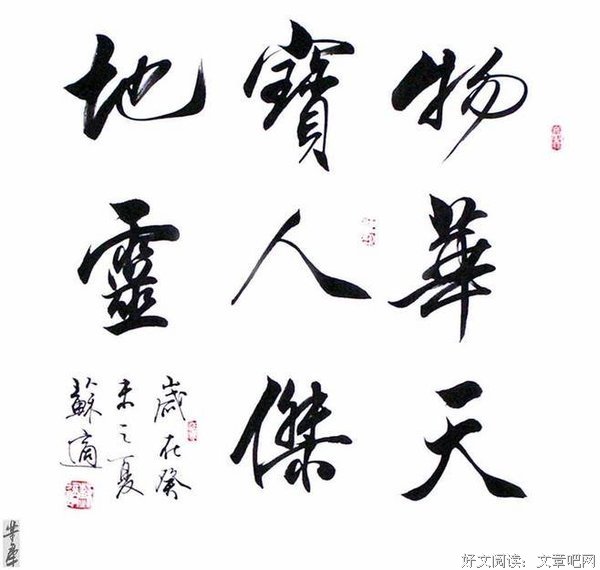 物華天
寶人傑
地靈
歲在癸
未之夏
蘇適
好文阅读：文章吧网